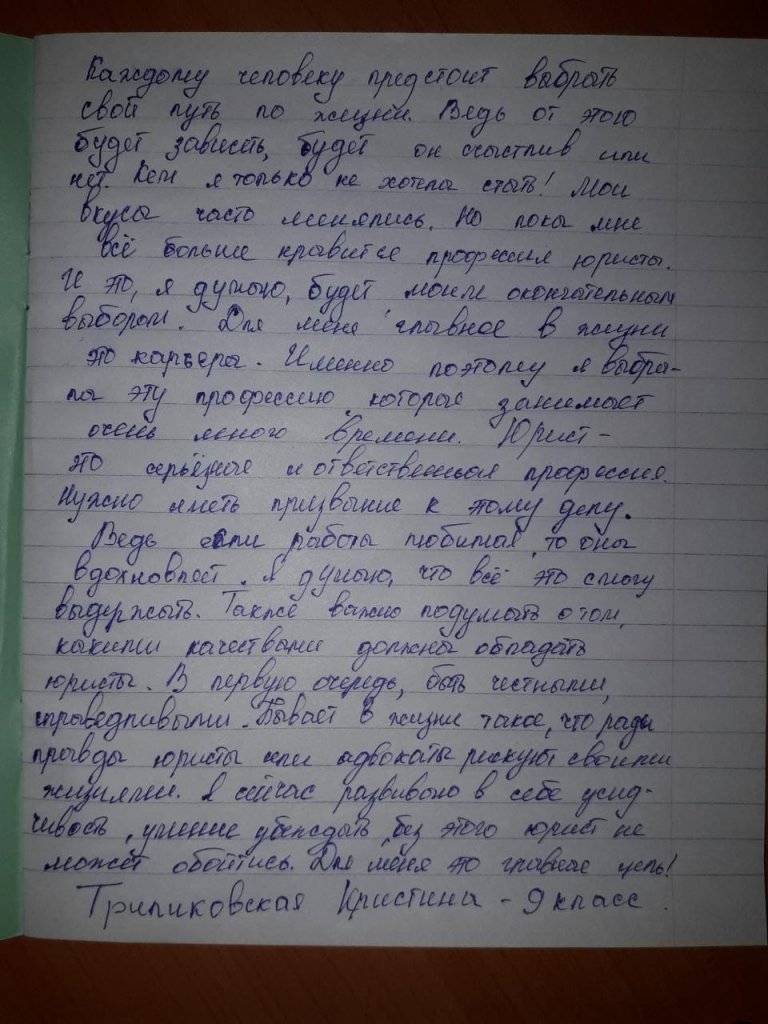 Каждому человеку предстоит выбрать
свой путь по жизни. Ведь от этого
будет зависеть, будет он счастлив или
нет. Кем я только не хотела стать! Мои
вкусы часто менялись. Но пока мне
всё больше нравится профессия юриста.
И это, я думаю, будет моим окончательным
выбором. Для меня главное в жизни
это карьера. Именно поэтому я выбра-
ла эту профессию, которая занимает
очень много времени. Юрист -
это серьёзная и ответственная профессия.
Нужно иметь призвание к этому делу.
Ведь если работа любимая, то она
вдохновляет. Я думаю, что всё это смогу
выдержать. Также важно подумать о том,
какими качествами должны обладать
юристы. В первую очередь, быть честными,
справедливыми. Бывает в жизни такое, что ради
правды юристы или адвокаты рискуют своими
жизнями. Я сейчас развиваю в себе усид-
чивость, умение убеждать, без этого юрист не
может обойтись. Для меня это главная цель!
Кристина - 9 класс.